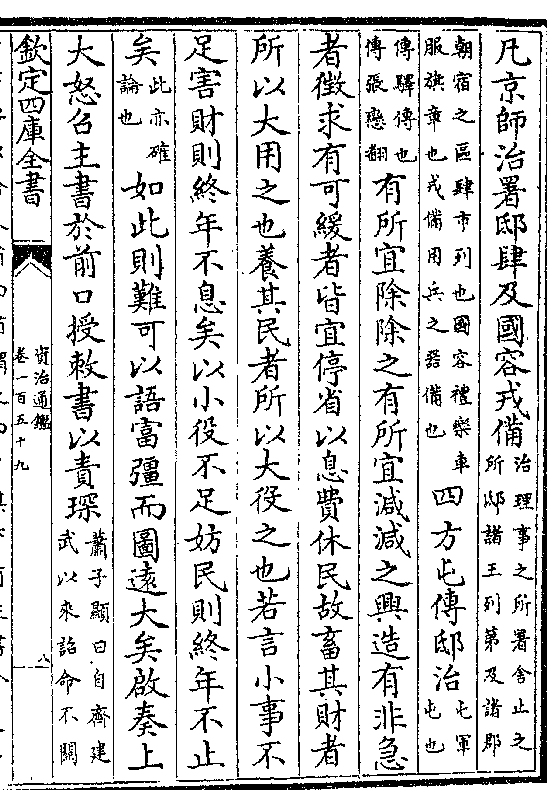 凡京師治署邸肆及國容戎備治理事之所署舍止之所邸諸王列第及諸郡
朝宿之區肆市列也國容禮樂車服旗章也戎備用兵之器備也四方屯傳邸治屯軍屯也
傳驛傳也傳張戀翻有所宜除除之有所宜減減之興造有非急
者徵求有可緩者皆宜停省以息費休民故畜其財者
所以大用之也養其民者所以大役之也若言小事不
足害財則終年不息矣以小役不足妨民則終年不止
矣此亦確論也如此則難可以語富彊而圖遠大矣啟奏上
大怒召主書於前口授敕書以責琛蕭子顯曰自齊建武以來詔命不關
欽定四庫全書
資治通鑑
卷一百五十九
八